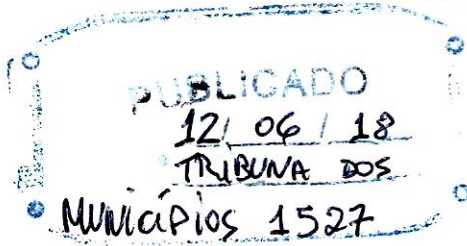 PUBLICADO
12/ 06 / 18
TRIBUNA DOS
MUNICÍPIOS 1527